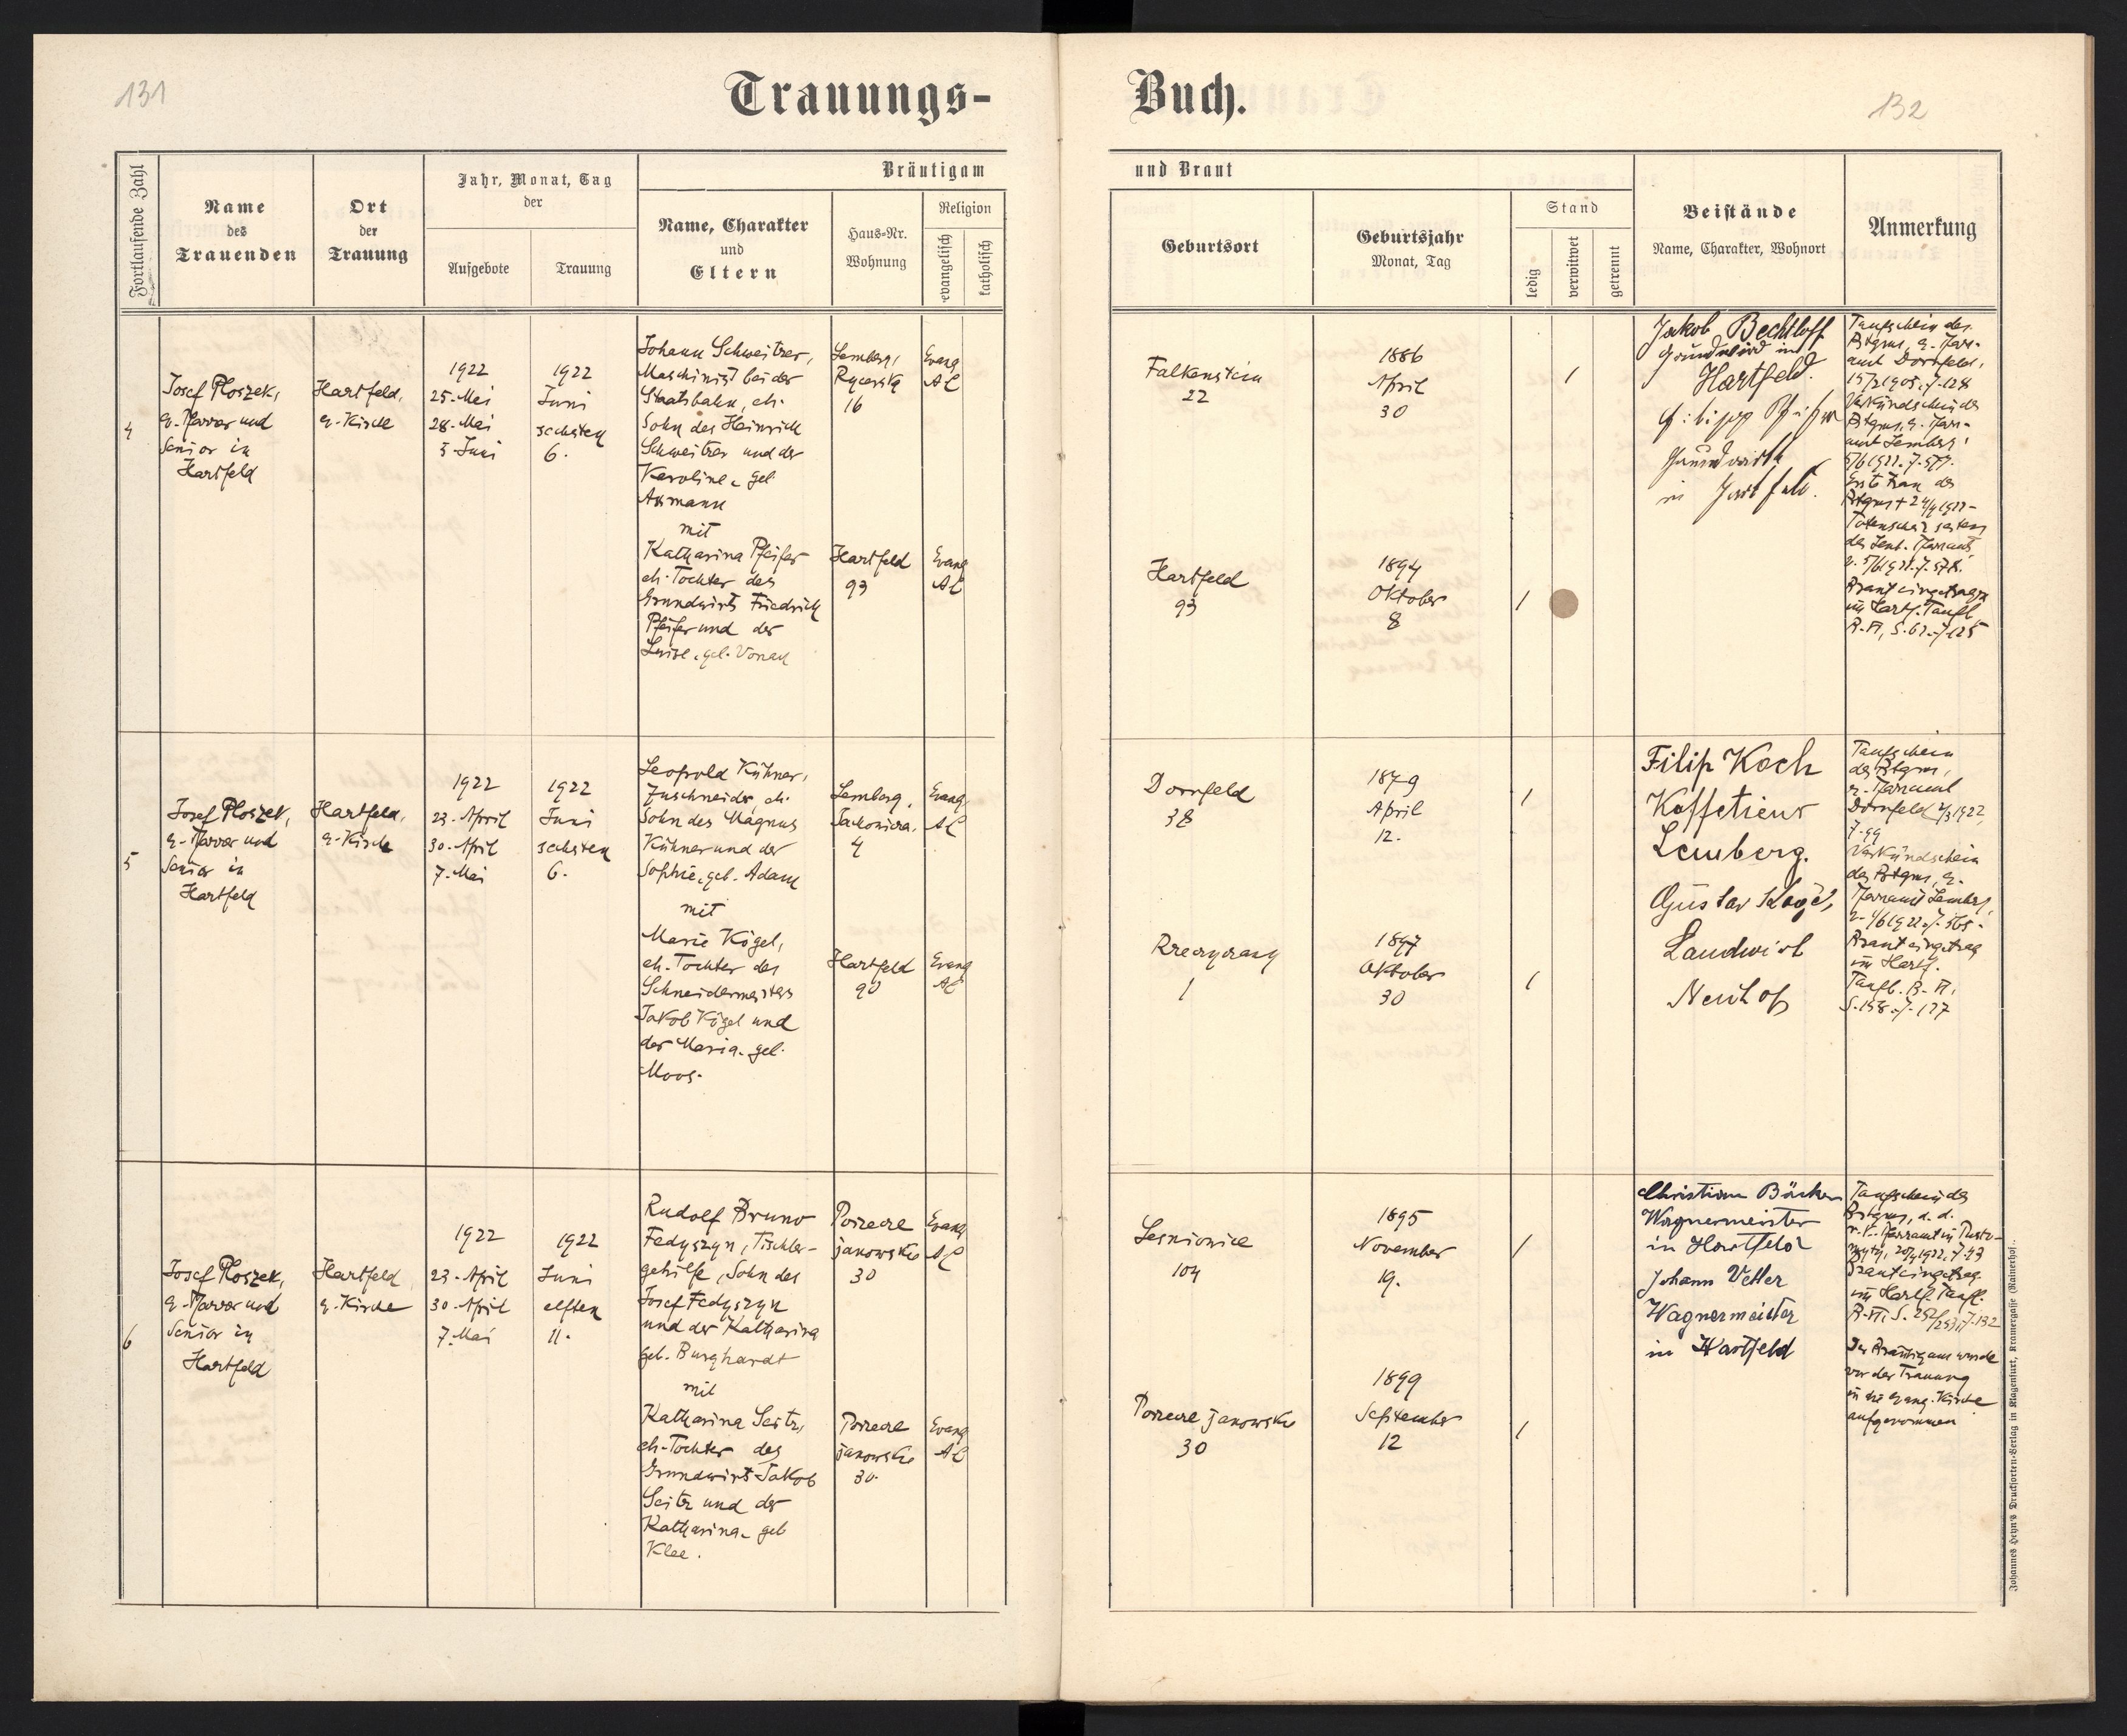 131
Trauungs-
Fortlaufende Zahl
Name
des
Trauenden
Ort
der
Trauung
Jahr, Monat, Tag
der
Aufgebote
Trauung
Bräutigam
Name, Charakter
und
Eltern
Haus-Nr.
Wohnung
Religion
evangelisch
katholisch
4
Josef Ploszek,
e. Pfarrer und
Senior in
Hartfeld
Hartfeld,
e. Kirche
1922
25. Mai
28. Mai
5. Juni
1922
Juni
sechsten
6.
Johann Schweitzer,
Maschinist bei der
Staatsbahn, eh.
Sohn des Heinrich
Schweitzer und der
Karoline, geb.
mit
Katharina Pfeifer
eh. Tochter des
Grundwirts Friedrich
Pfeifer und der
Luise, geb. Vonau
Lemberg,
16
Evang
AC
Hartfeld
93
Evang
AC
5
Josef Ploszek,
e. Pfarrer und
Senior in
Hartfeld
Hartfeld,
e. Kirche
1922
23. April
30. April
7. Mai
1922
Juni
sechsten
6.
Leopold Kühner,
Zuschneider, eh.
Sohn des Magnus
Kühner und der
Sophie, geb. Adam
mit
Marie Kögel,
eh. Tochter des
Schneidermeisters
Jakob Kögel und
der Maria, geb.
Moos.
Lemberg,
4
Evang
AC
Hartfeld
90
Evang
AC
6
Josef Ploszek,
e. Pfarrer und
Senior in
Hartfeld
Hartfeld,
e. Kirche
1922
23. April
30. April
7. Mai
1922
Juni
elften
11.
Rudolf Bruno
Fedyszyn, Tischler-
gehilfe, Sohn des
Josef Fedyszyn
und der Katharina
geb. Burghardt
mit
Katharina Seitz,
eh. Tochter des
Grundwirts Jakob
Seitz und der
Katharina, geb
Klee.
Porzecze
janowskie
30
Evang
AC
Porzecze
janowskie
30.
Evang
AC
Buch.
132
und Braut
Geburtsort
Geburtsjahr
Monat, Tag
Stand
ledig
verwitwet
getrennt
Beistände
Name, Charakter, Wohnort
Anmerkung
Falkenstein
22
1886
April
30
/
Hartfeld
93
1894
Oktober
8
/
Jakob Bechtloff
Grundwird in
Hartfeld.
Grundwirth
in Hartfeld.
Taufschein des
Btgms, e. Pfarr-
amt Dornfeld,
Verkündschein des
Btgms, e. Pfarr-
amt Lemberg,
Erste Frau des
Braut eingetragen
im Hartf. Taufb.
Dornfeld
38
1879
April
12.
/
1
1897
Oktober
30
/
Filip Koch
Koffetieur
Lemberg.
Gustav Kögel,
Landwirt
Neuhof
Taufschein
des Btgms,
e. Pfarramt
Dornfeld
Verkündschein
des Btgms, e.
Pfarramt Lemberg,
Braut eingetrag
im Hartf.
Lesniowice
104
1895
November
19.
/
Porzecze janowskie
30
1899
September
12
/
Christian Bäcker
Wagnermeister
in Hartfeld
Johann Vetter
Wagnermeister
in Hartfeld
Taufschein des
Braut eingetrag.
im Hartf. Taufb.
Der Bräutigam wurde
vor der Trauung
in die evang. Kirche
aufgenommen
Johannes Heyn's Drucksorten-Verlag in Klagenfurt, Kramergasse (Rainerhof).